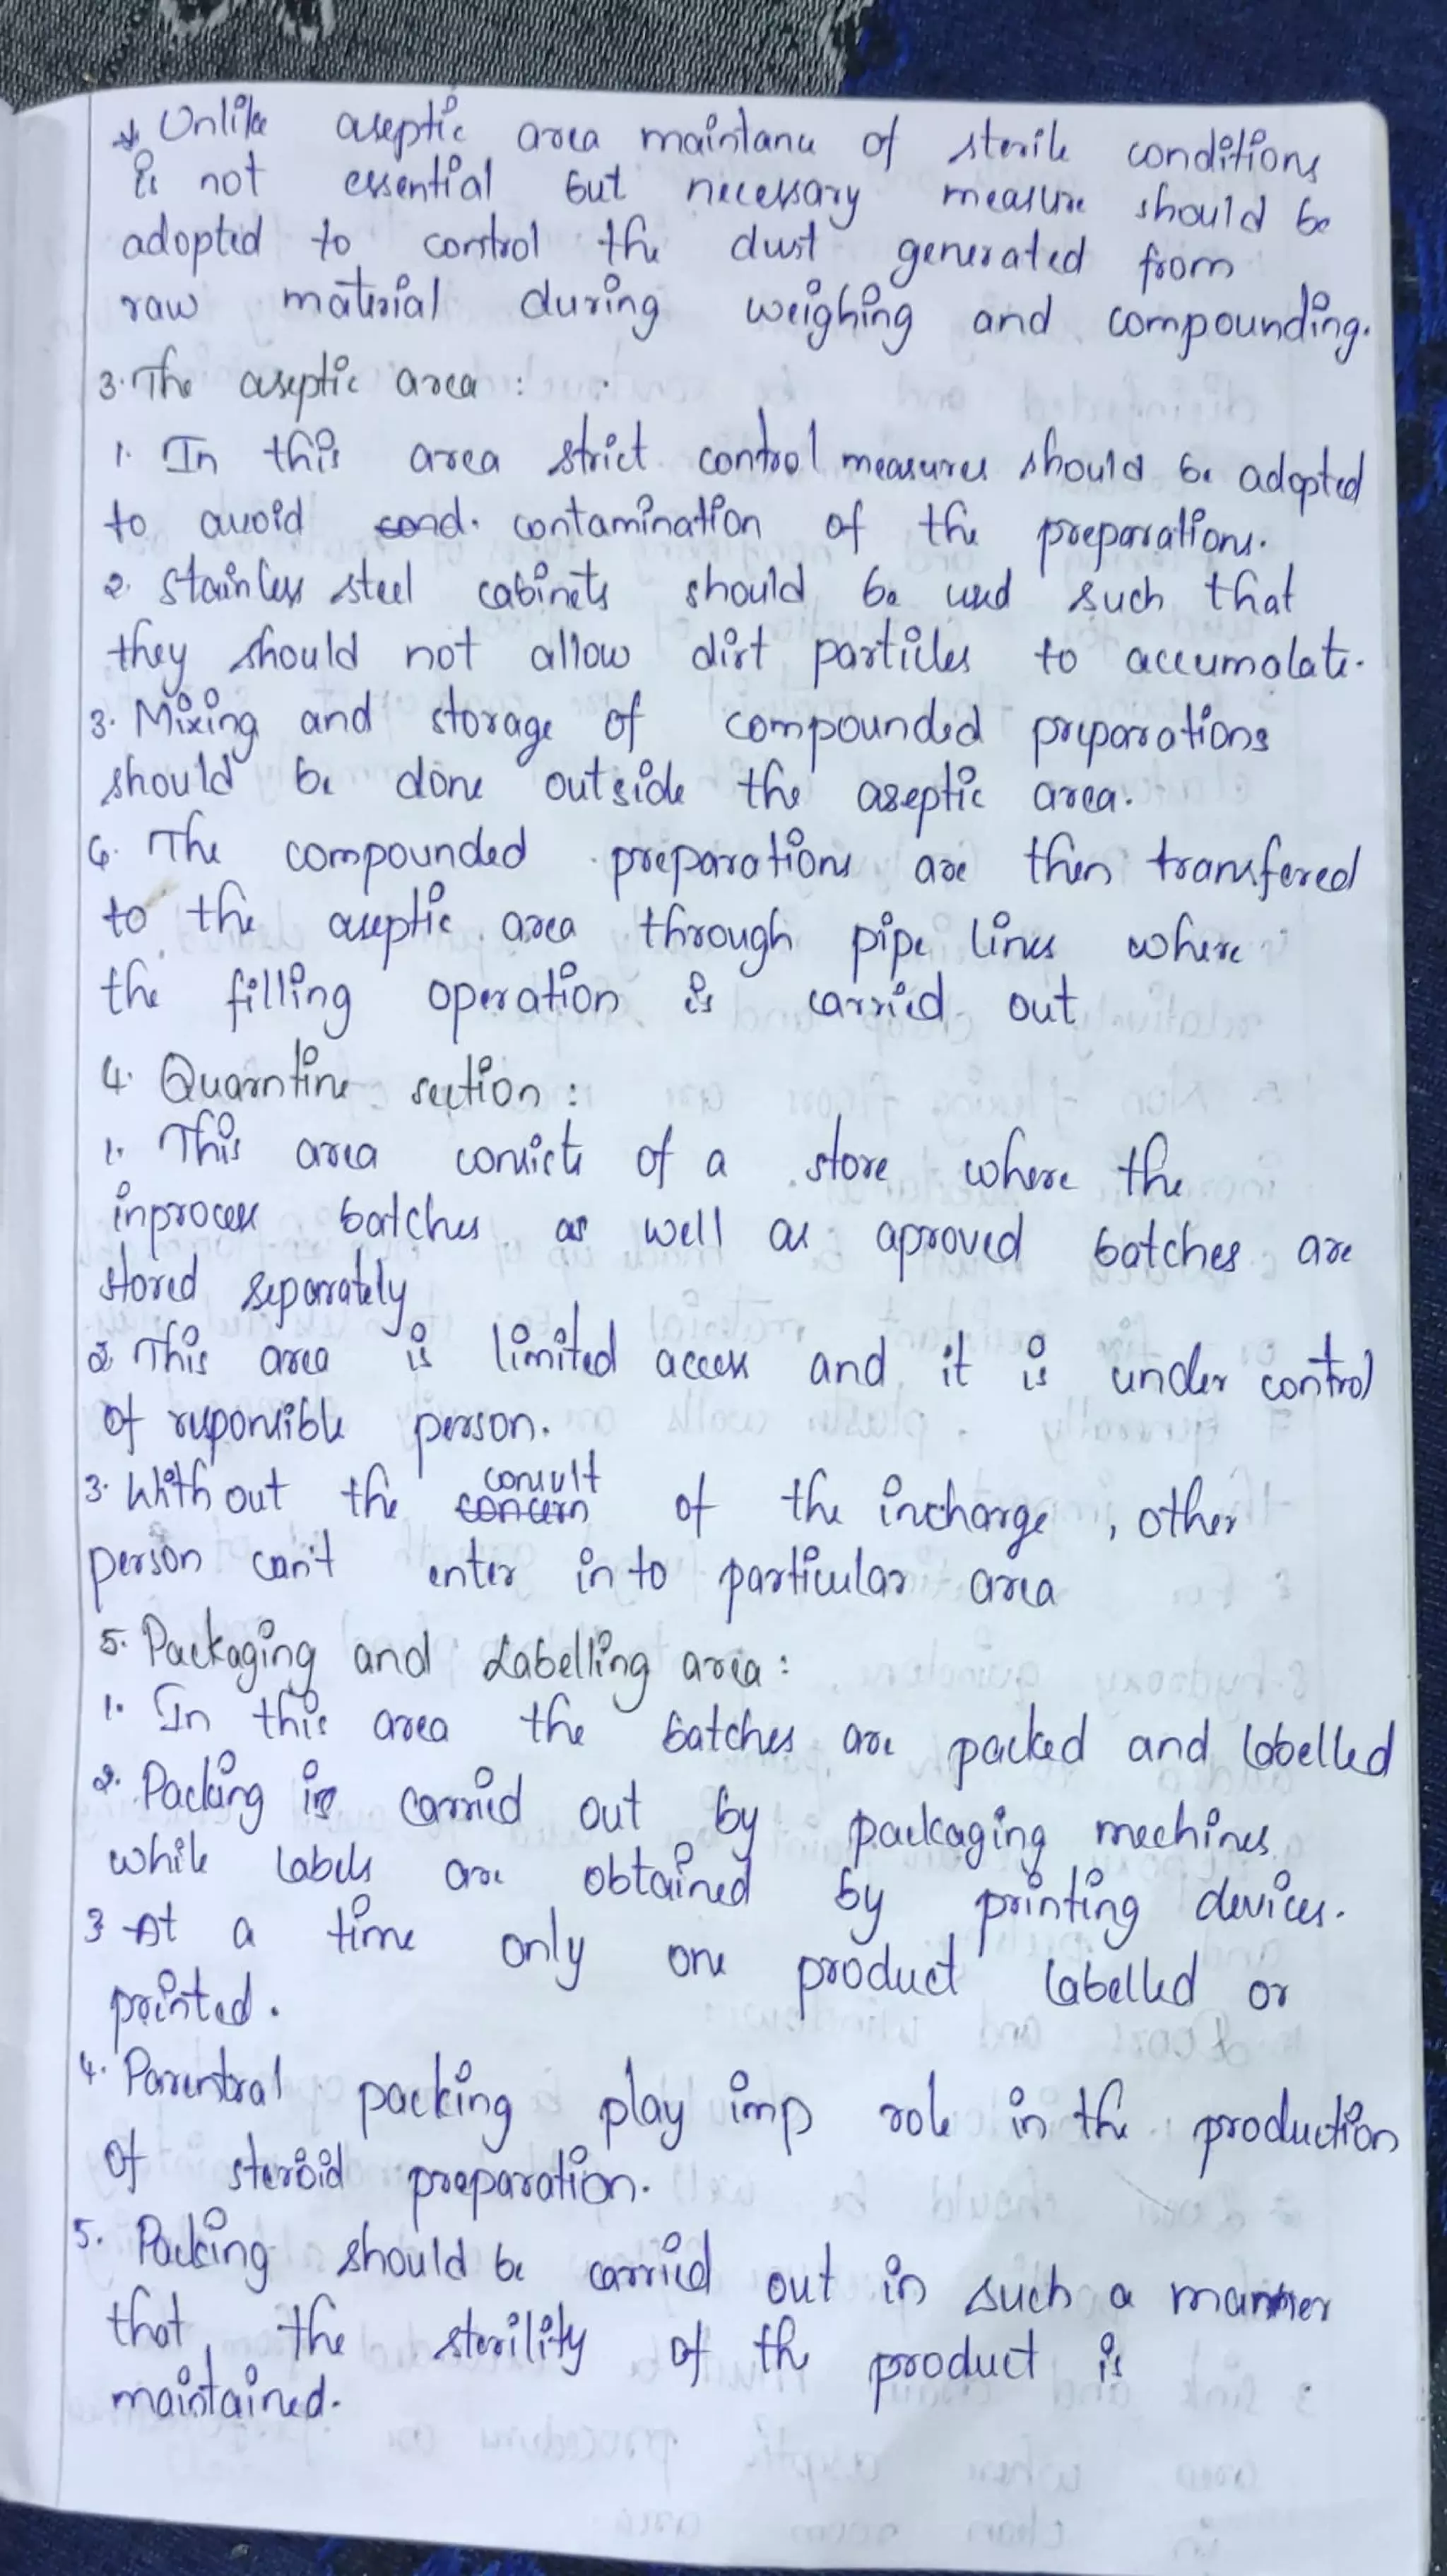 * Unlike aseptic area maintanu of sterile conditions
is not essential but necessary measure should be
adopted to control the dust generated from
raw material during weighing and compounding.
3. The aseptic area :
1. In this area strict control measures should be adopted
to avoid cond. contamination of the preparations.
2. Stainless steel cabinets should be used such that
they should not allow dirt particles to accumolate.
3. Mixing and storage of compounded preparations
should be done outside the aseptic area.
4. The compounded preparations are then transfered
to the aseptic area through pipe lines where
the filling operation is carried out
4. Quarntine section :
1. This area consists of a store where the
inprocess batches as well as aproved batches are
stored separately
2. This area is limited access and it is under control
of responsible person.
consult
3. With out the concern of the incharge, other
person can't enter in to particular area
5. Packaging and Labelling area :
1. In this area the batches are packed and labelled
2. Packing is carried out by packaging mechines
while labels are obtained by printing devices.
3 At a time only one product labelled or
printed.
4. Parentral packing play imp role in the production
of steroid preparation.
5. Packing should be carried out in such a manner
that, the sterility of the product is
maintained.